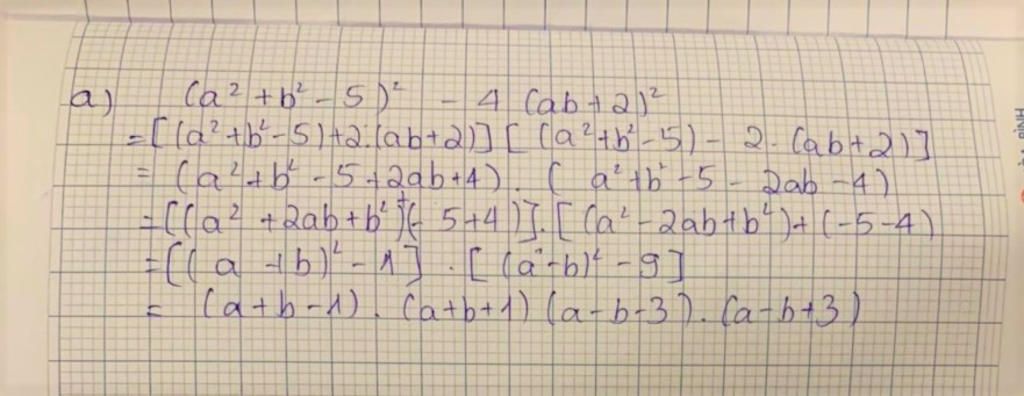 a) (a² + b² - 5)² - 4 (ab + 2)²
= [(a² + b² - 5) + 2.(ab + 2)] [(a² + b² - 5) - 2.(ab + 2)]
= (a² + b² - 5 + 2ab + 4) . (a² + b² - 5 - 2ab - 4)
= [(a² + 2ab + b²) + (- 5 + 4)] . [(a² - 2ab + b²) + (-5 - 4)
= [(a + b)² - 1] . [(a - b)² - 9]
= (a + b - 1) . (a + b + 1) (a - b - 3) . (a - b + 3)